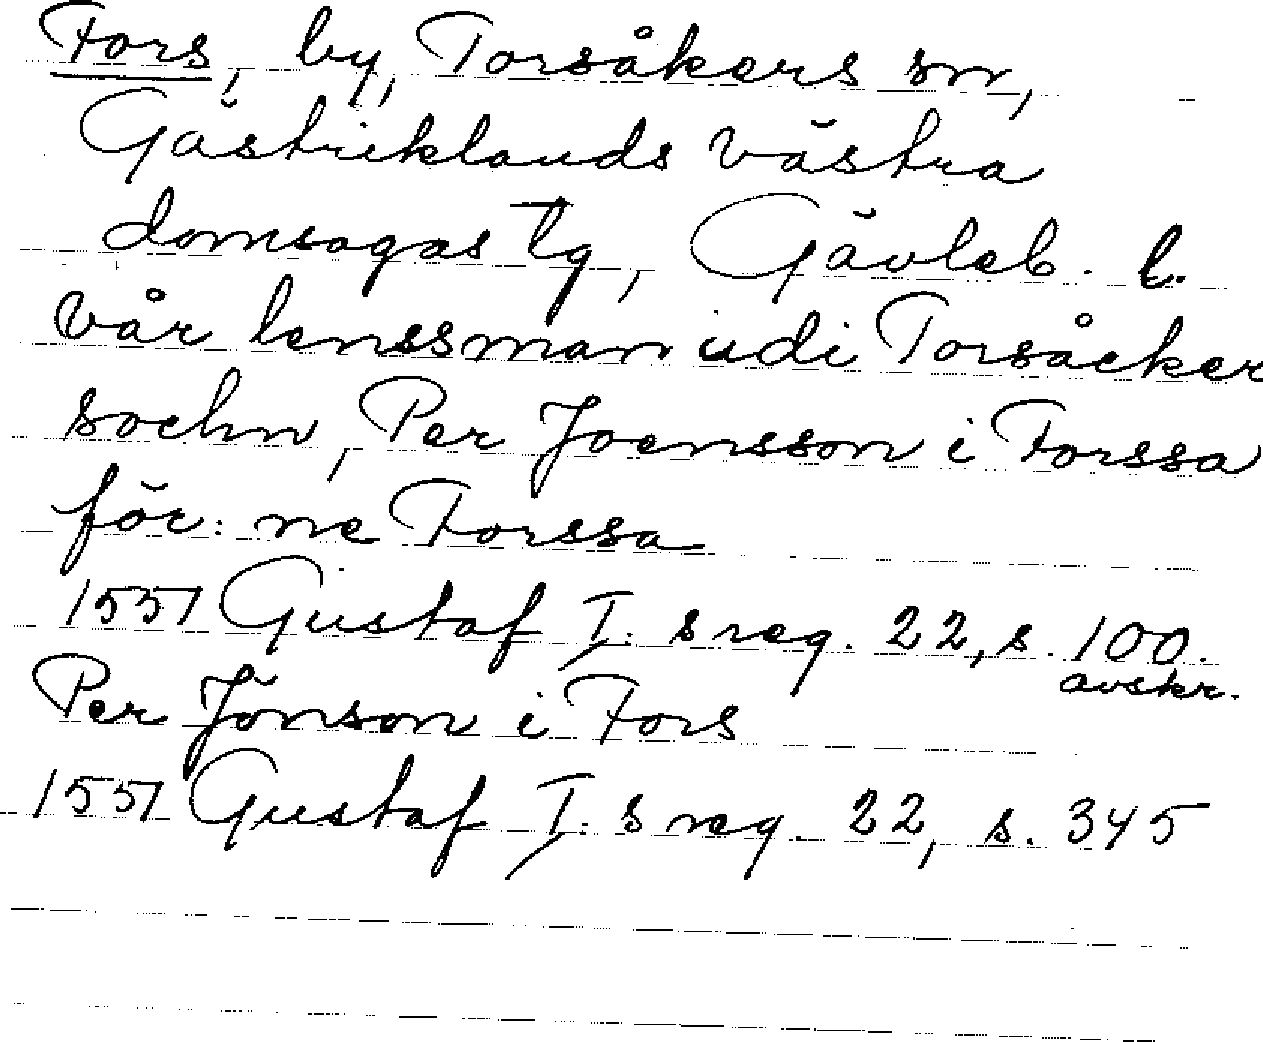 Fors, by, Torsåkers sn,
Gästriklands västra
domsagas tg, Gävleb. l.
vår lenssman udi Torsåcker
sochn, Per Joensson i Forssa
för: ne Forssa
1551 Gustaf I: s reg. 22, s. 100.
avskr.
Per Jönson i Fors
1551 Gustaf I: s reg. 22, s. 345